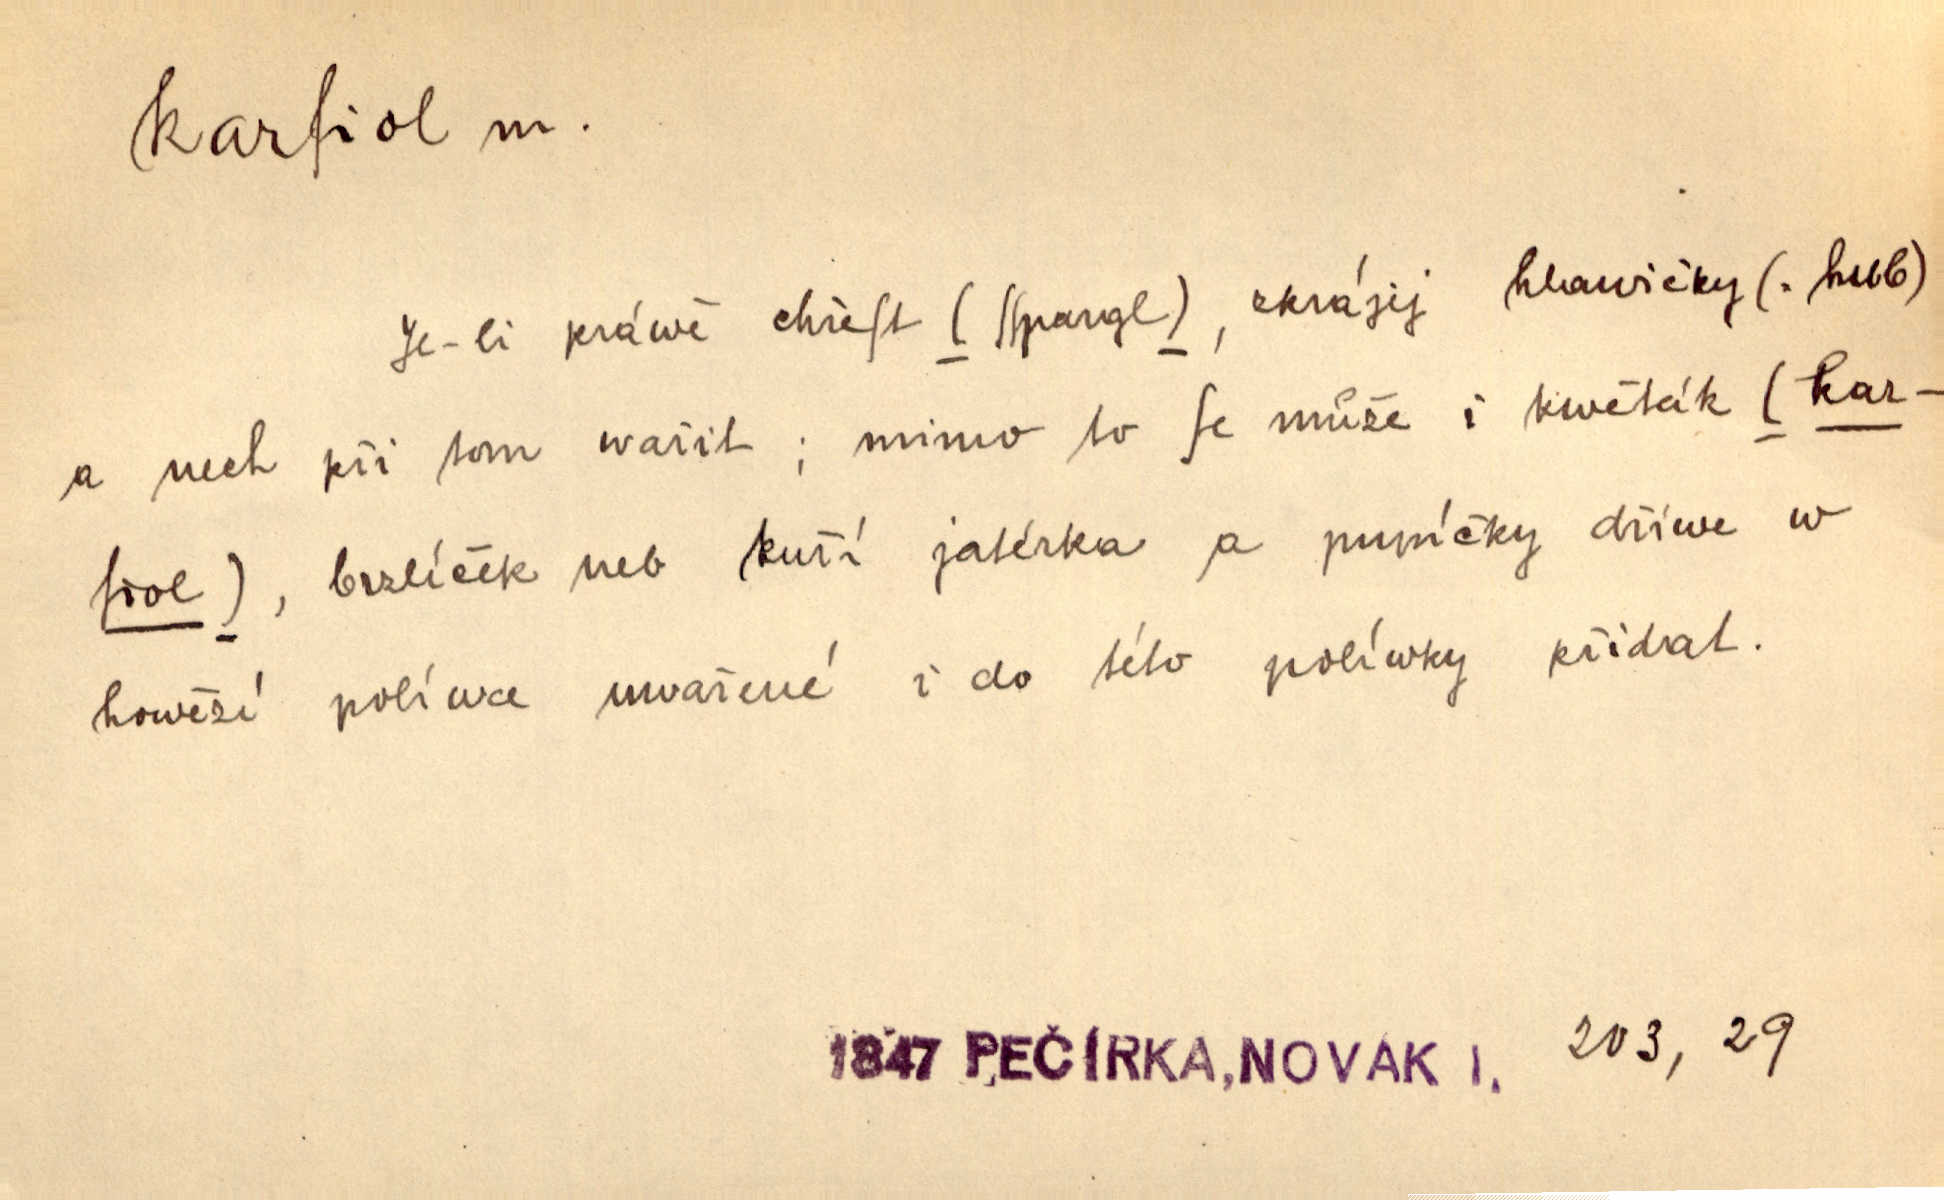 karfiol m.
Je-li práwě chřeſt (ſſpargl), zkrájej hlawičky (. hub)
a nech při tom wařit ; mimo to ſe může i kwěták (kar-
fiol), brzlíček neb kuří jatérka a pupíčky dříwe w
howězí políwce uwařené i do této políwky přidat.
1847 PEČÍRKA, NOVÁK I. 203, 29